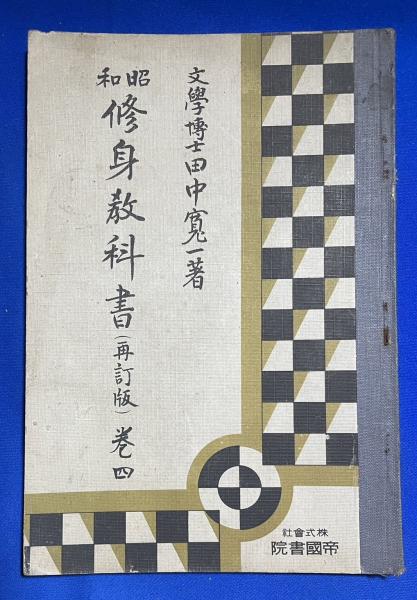 文學博士田中寬一著
昭和
修身教科書(再訂版)卷四
株式會社
帝國書院